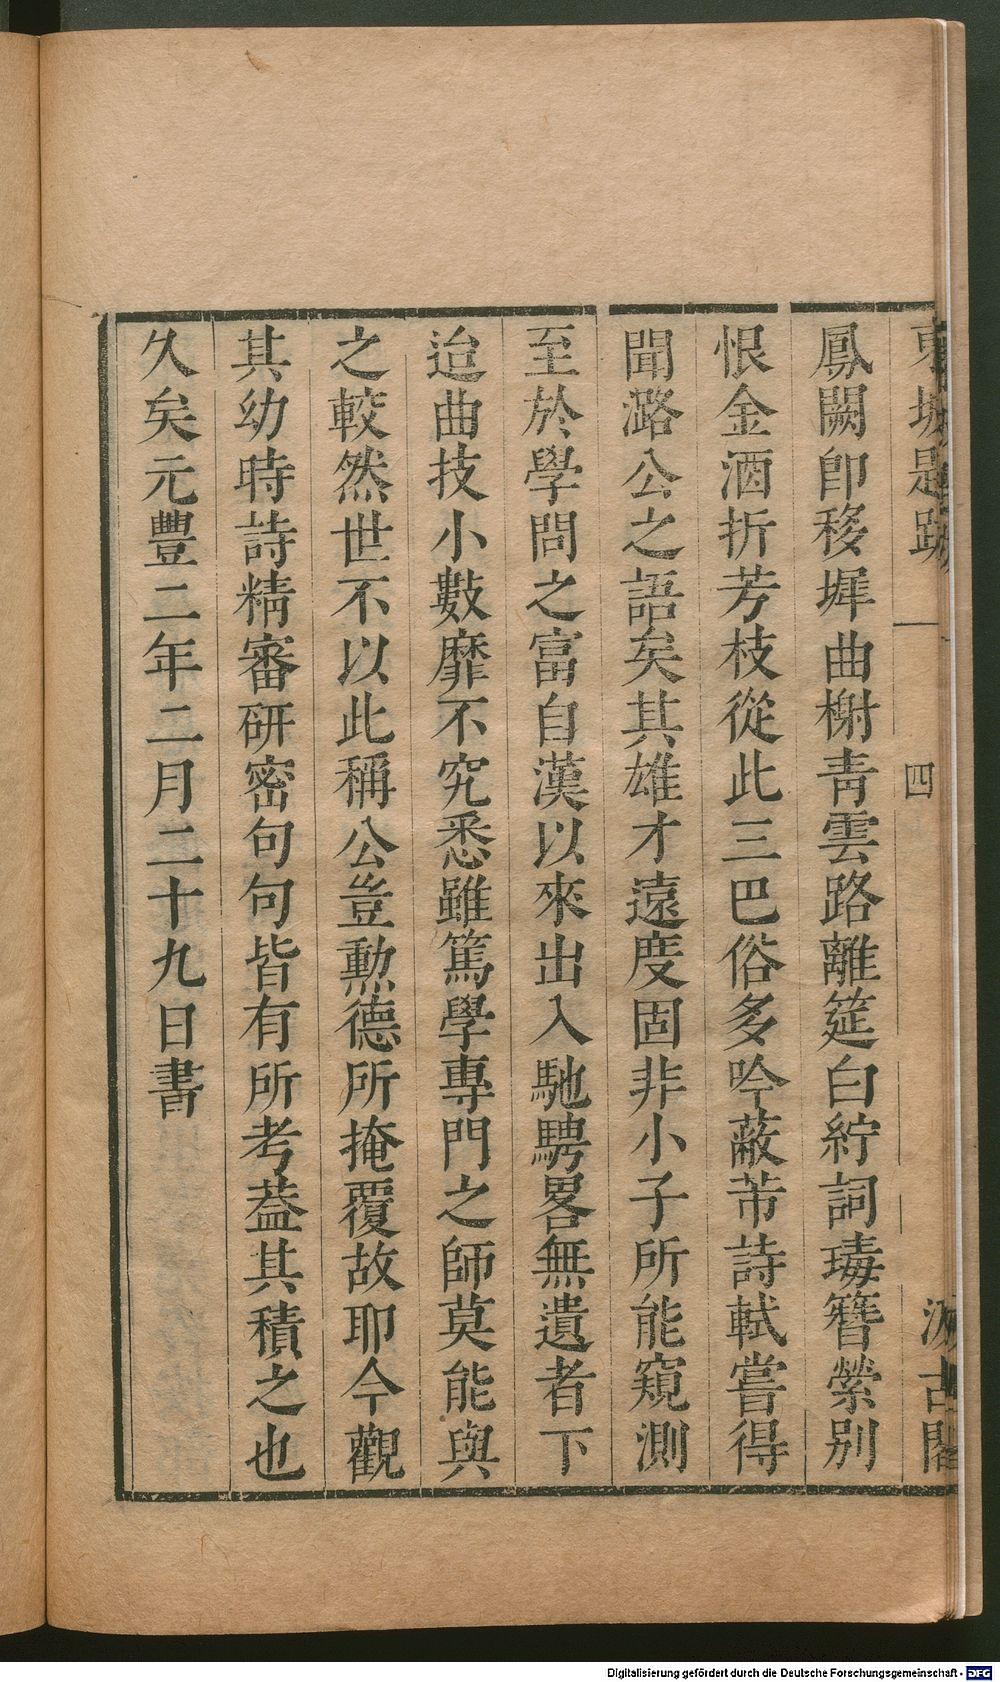 東坡題跋 四 汲古閣
鳳闕卽移墀曲榭靑雲路離筵白紵詞瑇簪縈別
恨金酒折芳枝從此三巴俗多吟蔽芾詩軾嘗得
聞潞公之語矣其雄才遠度固非小子所能窺測
至於學問之富自漢以來出入馳騁畧無遺者下
迨曲技小數靡不究悉雖篤學專門之師莫能與
之較然世不以此稱公豈勲德所掩覆故耶今觀
其幼時詩精審研密句句皆有所考葢其積之也
久矣元豐二年二月二十九日書
Digitalisierung gefördert durch die Deutsche Forschungsgemeinschaft - DFG